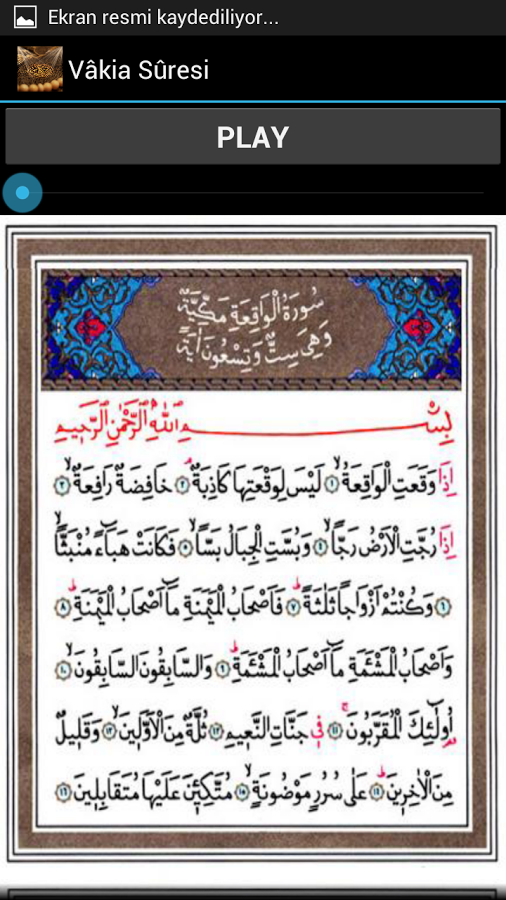 Ekran resmi kaydediliyor...
Vâkia Sûresi
PLAY
سُورَةُ الْوَاقِعَةِ مَكِّيَّةٌ
وَهِيَ سِتٌّ وَتِسْعُونَ اٰيَةً
بِسْمِ اللّٰهِ الرَّحْمٰنِ الرَّحِيمِ
اِذَا وَقَعَتِ الْوَاقِعَةُۙ ﴿١﴾ لَيْسَ لِوَقْعَتِهَا كَاذِبَةٌۢ ﴿٢﴾ خَافِضَةٌ رَافِعَةٌۙ ﴿٣﴾
اِذَا رُجَّتِ الْاَرْضُ رَجًّاۙ ﴿٤﴾ وَبُسَّتِ الْجِبَالُ بَسًّاۙ ﴿٥﴾ فَكَانَتْ هَبَٓاءً مُنْبَثًّاۙ
﴿٦﴾ وَكُنْتُمْ اَزْوَاجًا ثَلٰثَةًۜ ﴿٧﴾ فَاَصْحَابُ الْمَيْمَنَةِ مَٓا اَصْحَابُ الْمَيْمَنَةِۜ ﴿٨﴾
وَاَصْحَابُ الْمَشْـَٔمَةِ مَٓا اَصْحَابُ الْمَشْـَٔمَةِۜ ﴿٩﴾ وَالسَّابِقُونَ السَّابِقُونَۙ ﴿١٠﴾
اُو۬لٰٓئِكَ الْمُقَرَّبُونَۚ ﴿١١﴾ فِي جَنَّاتِ النَّعِيمِ ﴿١٢﴾ ثُلَّةٌ مِنَ الْاَوَّلِينَۙ ﴿١٣﴾ وَقَلِيلٌ
مِنَ الْاٰخِرِينَۜ ﴿١٤﴾ عَلٰى سُرُرٍ مَوْضُونَةٍۙ ﴿١٥﴾ مُتَّكِـِٔينَ عَلَيْهَا مُتَقَابِلِينَ ﴿١٦﴾